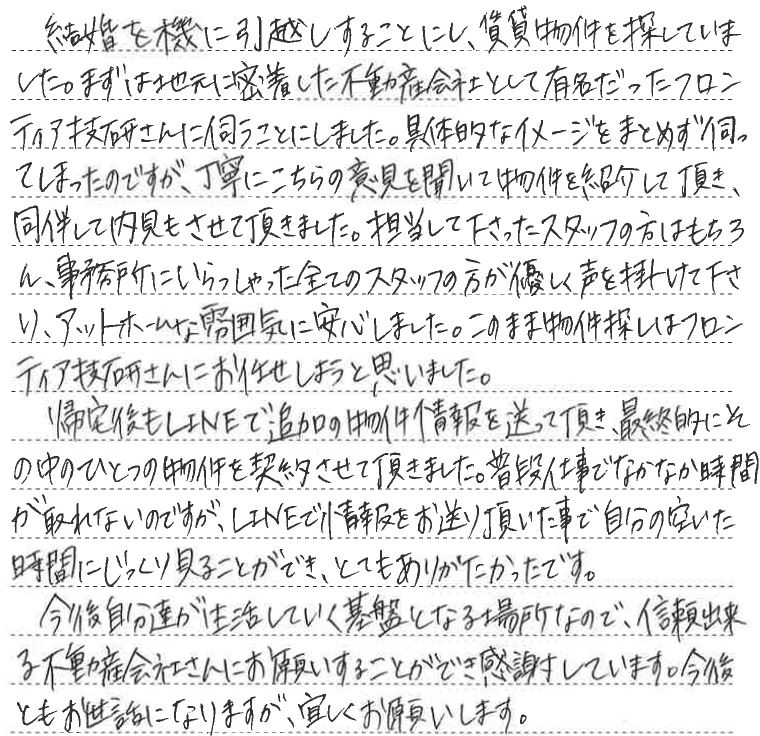 結婚を機に引越しすることにし、賃貸物件を探していま
した。まずは地元に密着した不動産会社として有名だったフロン
ティア技研さんに伺うことにしました。具体的なイメージをまとめず伺っ
てしまったのですが、丁寧にこちらの意見を聞いて物件を紹介して頂き、
同伴して内見もさせて頂きました。担当して下さったスタッフの方はもちろ
ん、事務所にいらっしゃった全てのスタッフの方が優しく声を掛けて下さ
り、アットホームな雰囲気に安心しました。このまま物件探しはフロン
ティア技研さんにお任せしようと思いました。
帰宅後もLINEで追加の物件情報を送って頂き、最終的にそ
の中のひとつの物件を契約させて頂きました。普段仕事でなかなか時間
が取れないのですが、LINEで情報をお送り頂いた事で自分の空いた
時間にじっくり見ることができ、とてもありがたかったです。
今後自分達が生活していく基盤となる場所なので、信頼出来
る不動産会社さんにお願いすることができ感謝しています。今後
ともお世話になりますが、宜しくお願いします。